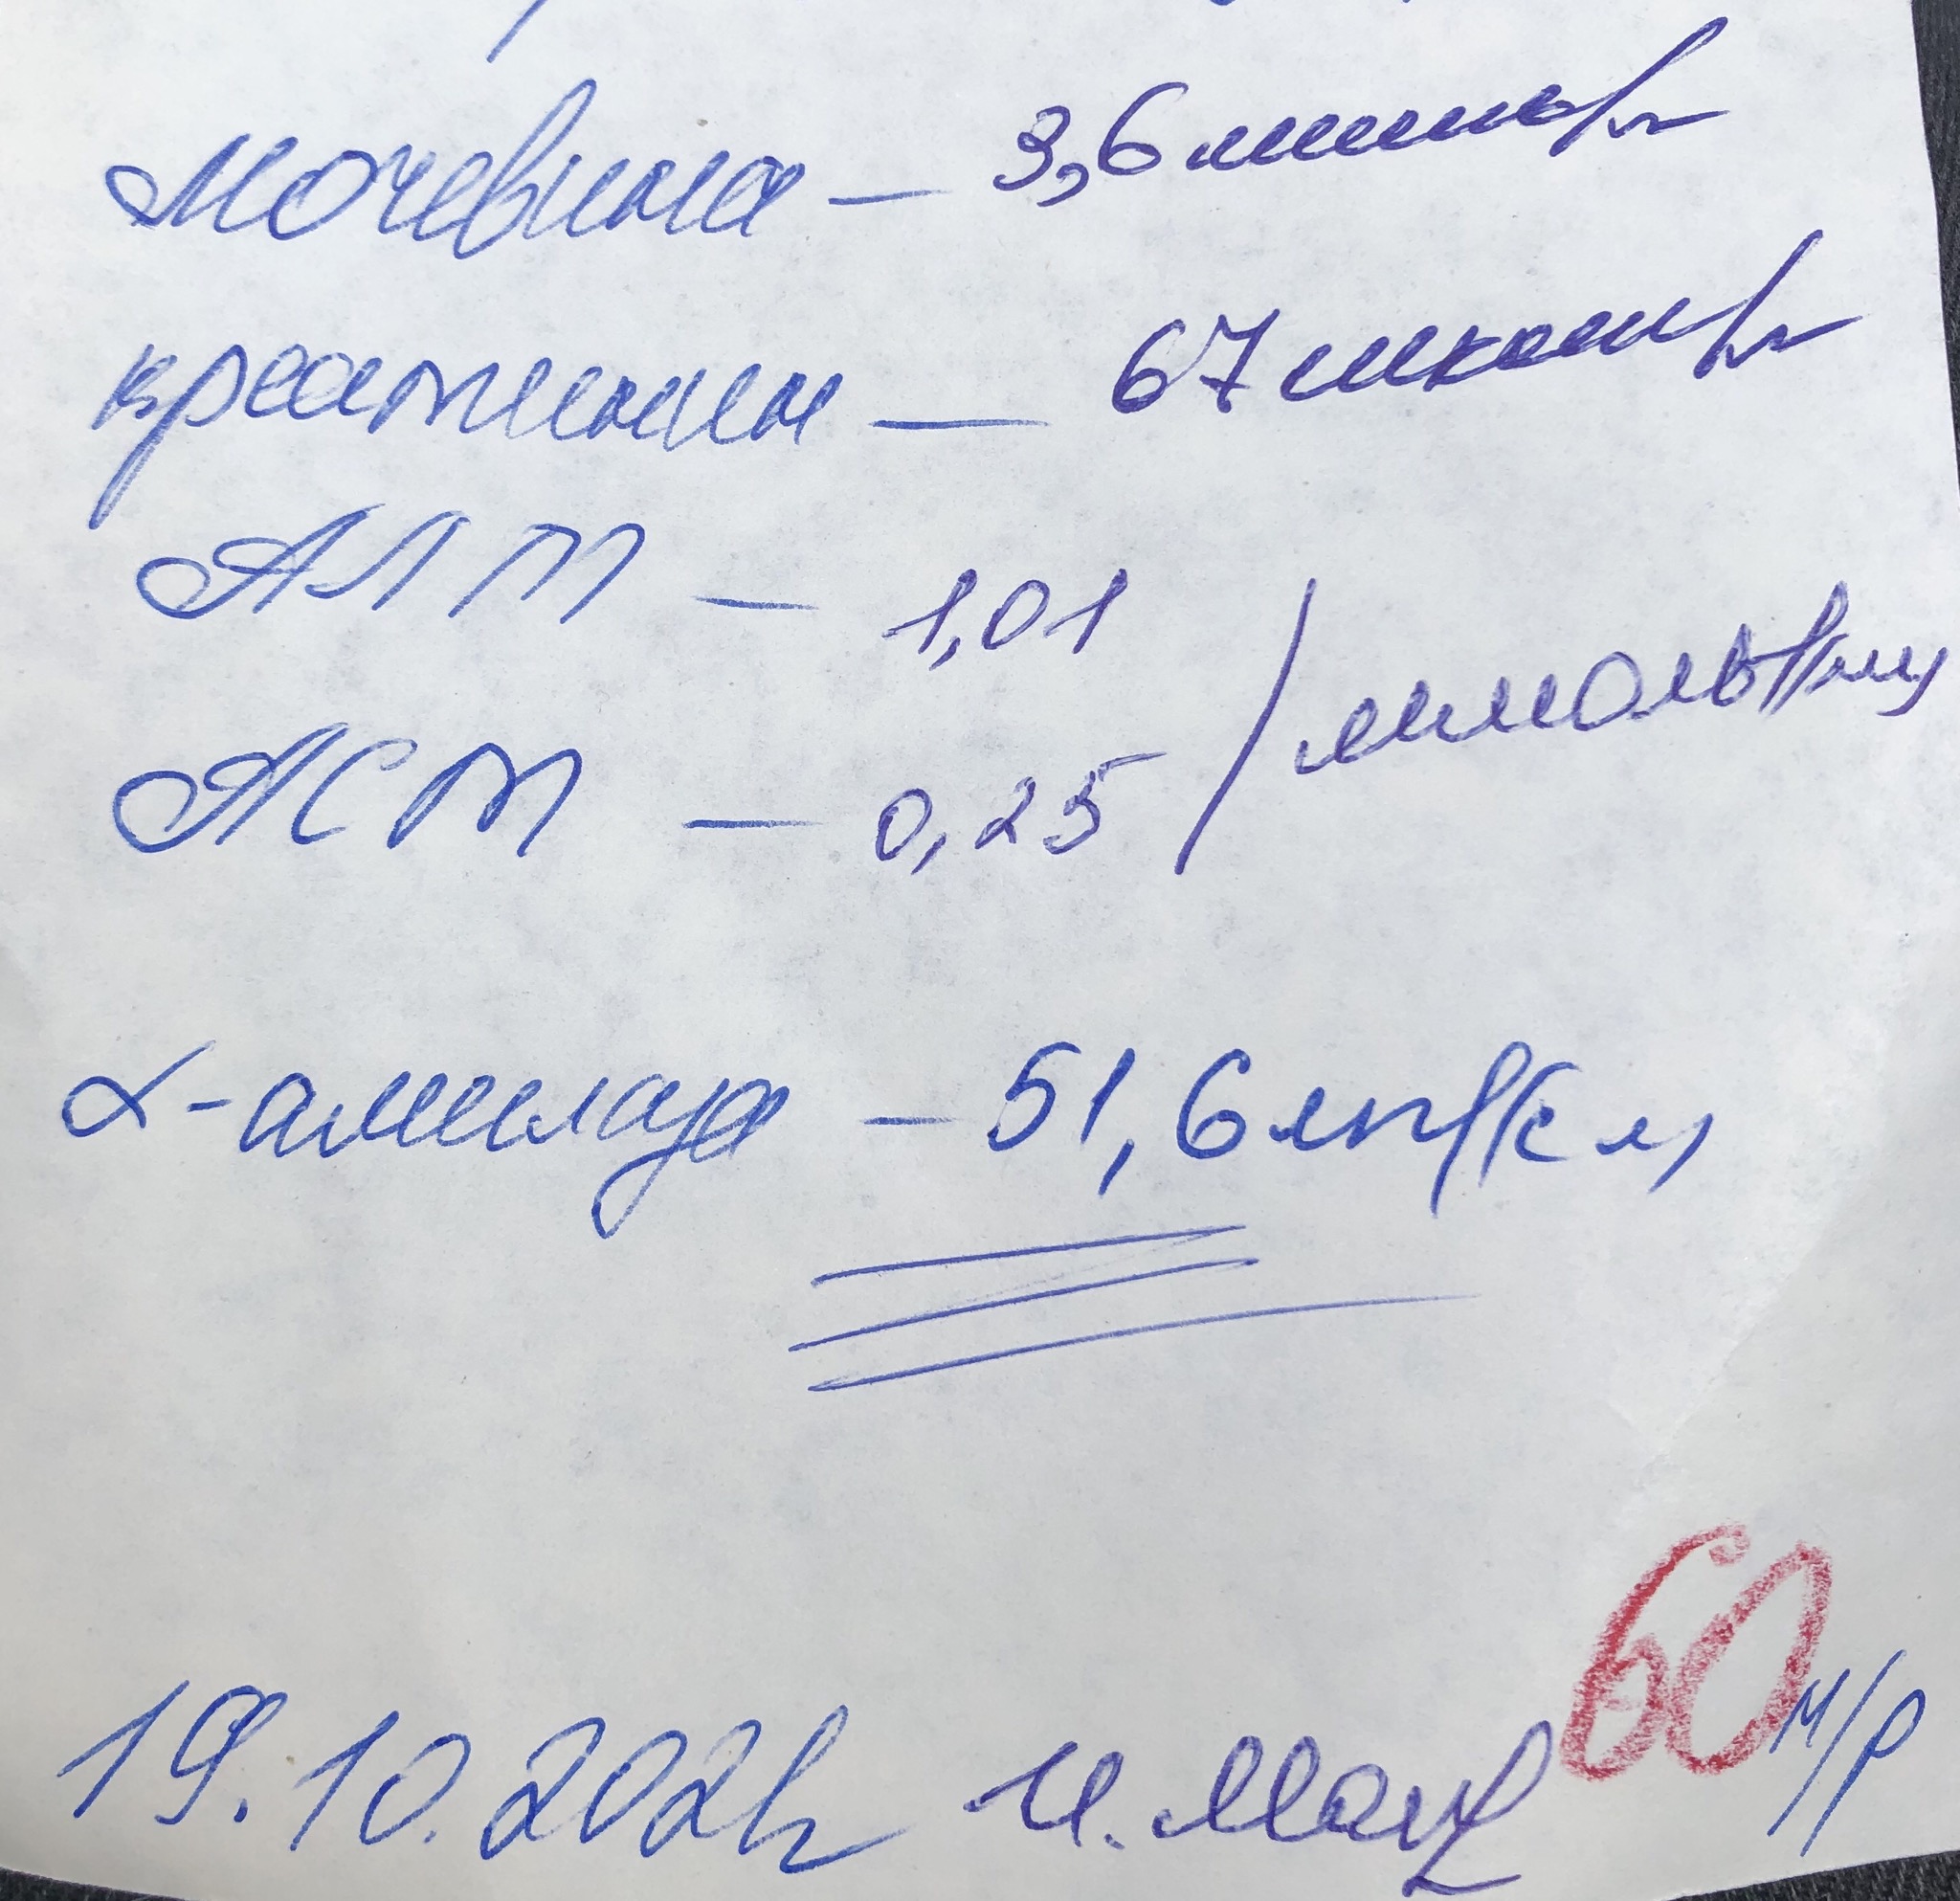 мочевина — 3,6 ммоль/л
креатинин — 67 мкмоль/л
АЛТ — 1,01
АСТ — 0,25 / ммоль/
α-амилаза — 51,6
60
м/р
19.10.202